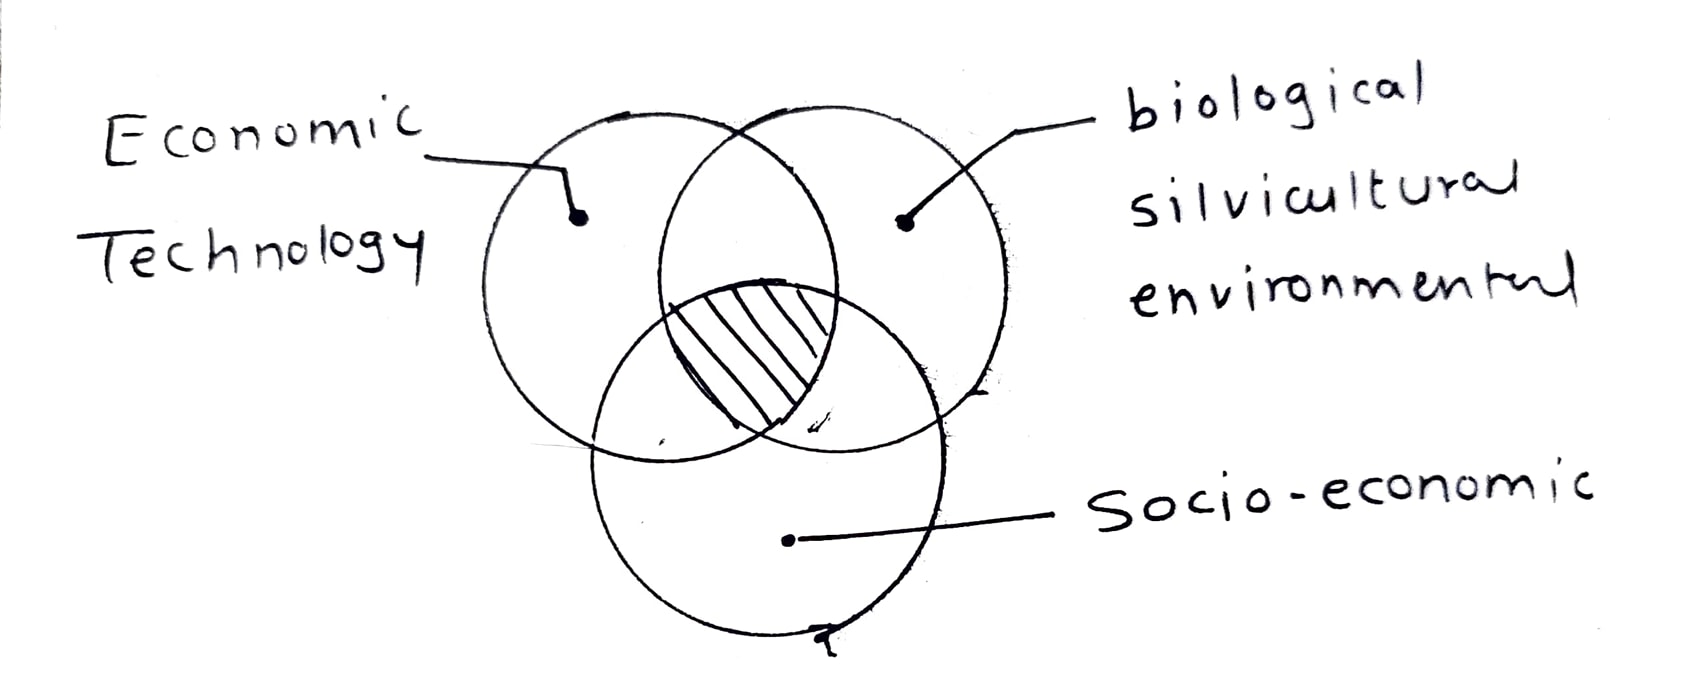 Economic
Technology
biological
silvicultural
environmental
Socio-economic